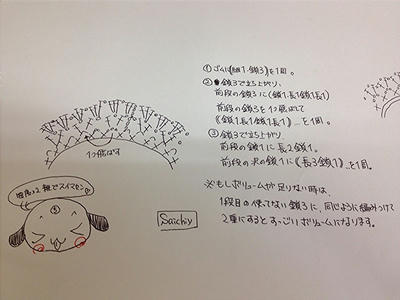 ① ゴムに(細1・鎖3)を1周。
② 鎖3で立ち上がり、
前段の鎖3に(鎖1.長1鎖1長1)
前段の鎖3を1つ飛ばして
《(鎖1.長1鎖1長1)》…を1周。
③ 鎖3で立ち上がり、
前段の鎖1に長2鎖1。
前段の次の鎖1に《長3鎖1》…を1周。
※もしボリュームが足りない時は、
1段目の使ってない鎖3に、同じように編みつけて
2重にするとすっごいボリュームになります。
1つ飛ばす
雑でスイマセン
Saichiy